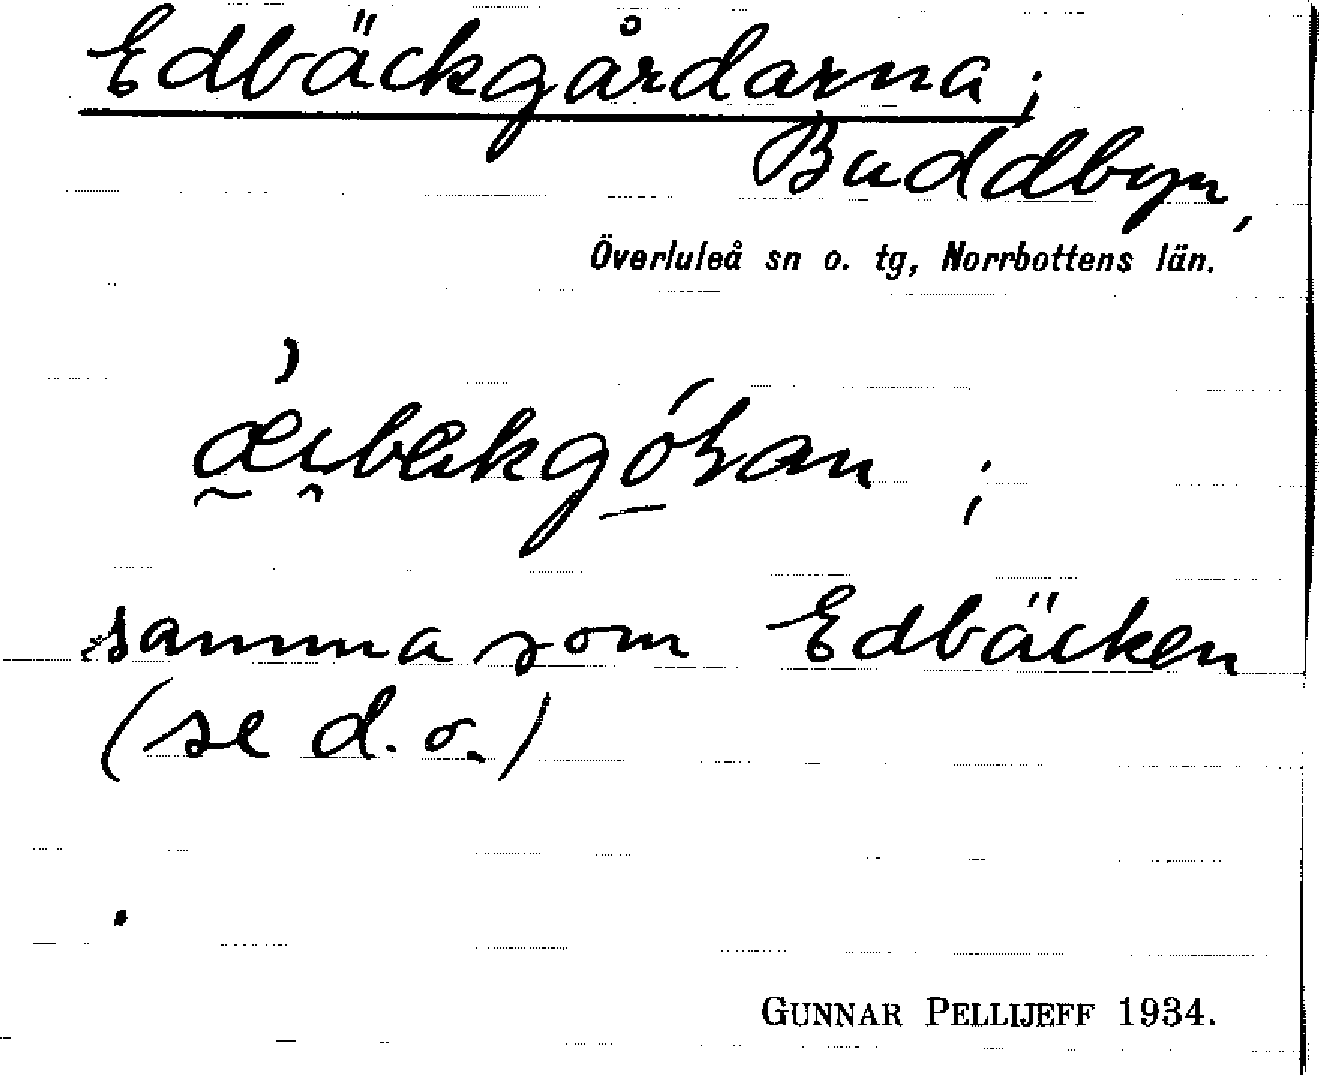 Edbäckgårdarna;
Buddbyn,
Överluleå sn o. tg, Norrbottens län.
samma som Edbäcken
(se d. o.)
GUNNAR PELLIJEFF 1934.